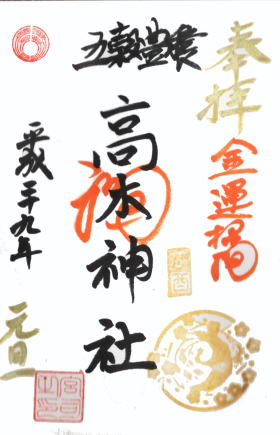 奉拝
金運招福
五穀豊穣
高木神社
平成二十九年
元旦